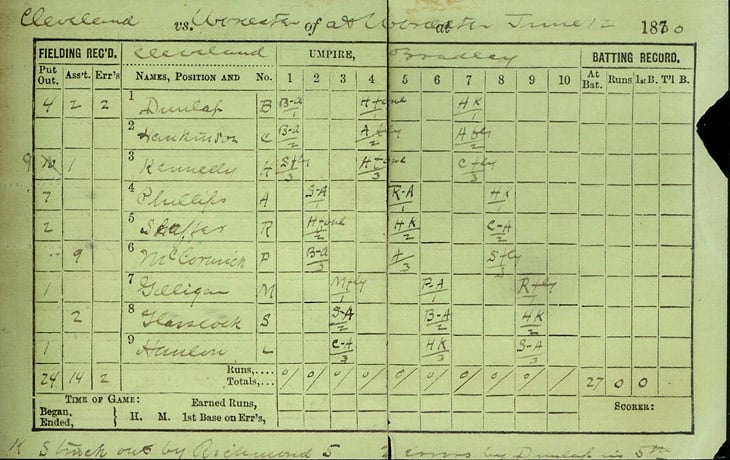 Cleveland vs. Worcester of at Worcester at June 12 1880
FIELDING REC'D. Cleveland UMPIRE, Bradley BATTING RECORD.
Put Out. Ass't. Err's NAMES, POSITION AND No. 1 2 3 4 5 6 7 8 9 10 At Bat. Runs 1st B. T'l B.
4 2 2 1 Dunlap B B-A/1 H foul/1 HK/1
2 Hankinson C B-A/2 A fly/2 A fly/2
9 1 3 Kennedy H S fly/3 H foul/3 C fly/3
7 4 Phillips A S-A/1 R-A/1 HK/1
2 5 Shaffer R H foul/2 HK/2 C-A/2
9 6 McCormick P B-A/3 A/3 S fly/3
1 7 Gilligan M M fly/1 P-A/1 R fly/1
2 8 Glasscock S S-A/2 B-A/2 HK/2
1 9 Hanlon L C-A/3 HK/3 S-A/3
24 14 2 Runs,.... Totals,... 0/ 0/ 0/ 0/ 0/ 0/ 0/ 0/ 0/ 27 0 0
TIME OF GAME: Earned Runs, SCORER:
Began. Ended, } H. M. 1st Base on Err's,
K Struck out by Richmond 5 2 errors by Dunlap in 5th